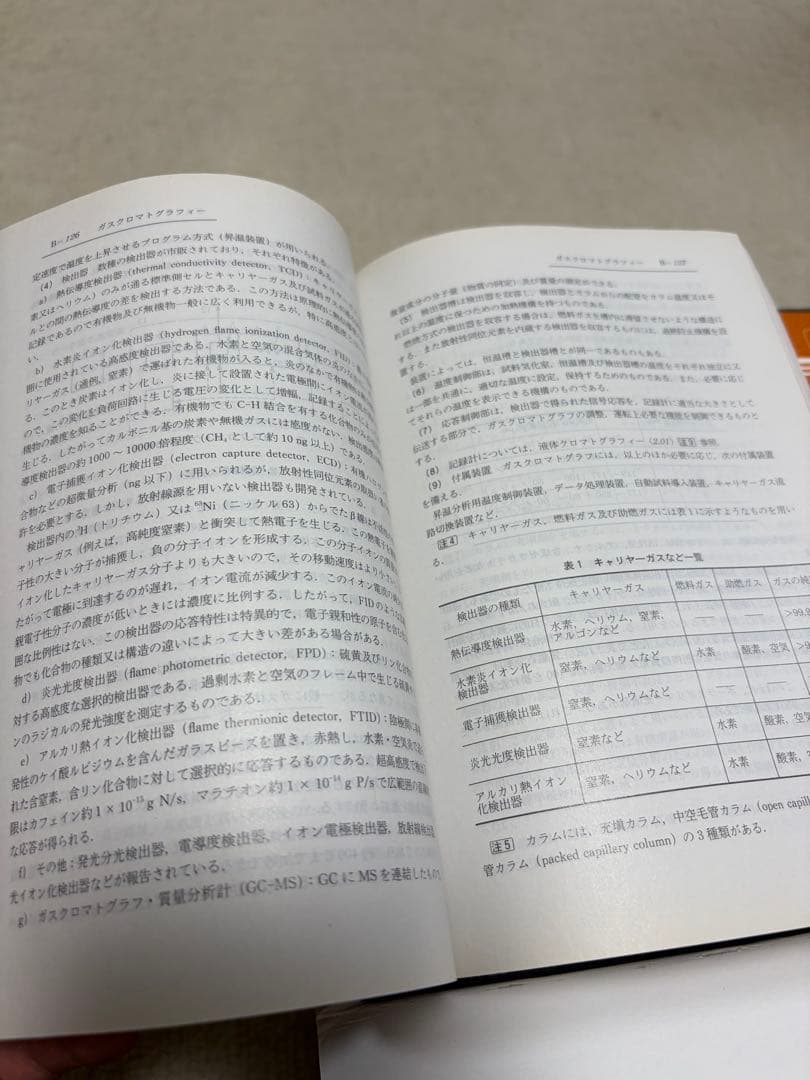 B-126 ガスクロマトグラフィー
定速度で温度を上昇させるプログラム方式(昇温装置)が用いられる.
(4) 検出器 数種の検出器が市販されており,それぞれ特徴がある.
a) 熱伝導度検出器(thermal conductivity detector, TCD):キャリヤーガス(水
素又はヘリウム)のみが通る標準側セルとキャリヤーガス及び試料ガスが
ルとの間の熱伝導の差を検出する方法である.この方法は原理的に
記録であるので有機物及び無機物一般に広く利用できるが,特に高感度と
い.
b) 水素炎イオン化検出器(hydrogen flame ionization detector, FID):
囲に使用されている高感度検出器である.水素と空気の混合気体の炎の
リヤーガス(通例,窒素)で運ばれた有機物が入ると,炎のなかで有機物は
る.このとき炭素はイオン化し,炎に接して設置された電極間にイオン電流
ので,この変化を負荷回路に生じる電圧の変化として増幅,記録することにより
機物の濃度を知ることができる.有機物でも C-H 結合を有する化合物のみ
生じる.したがってカルボニル基の炭素や無機ガスには感度がない.検出感度
導度検出器の約 1000~10000 倍程度(CH₄ として約 10 ng 以上)である.
c) 電子捕獲イオン化検出器(electron capture detector, ECD):有機ハロゲン
合物などの超微量分析(ng 以下)に用いられるが,放射性同位元素の
許を必要とする.しかし,放射線源を用いない検出器も開発されている.
検出器内の ³H(トリチウム)又は ⁶³Ni(ニッケル 63)からでたβ線は
ャリヤーガス(例えば,高純度窒素)と衝突して熱電子を生じる.この熱電子を
子性の大きい分子が捕獲し,負の分子イオンを形成する.この分子イオンの質量は
イオン化したキャリヤーガス分子よりも大きいので,その移動速度はより小さい.し
たがって電極に到達するのが遅れ,イオン電流が減少する.このイオン電流の
親電子性分子の濃度が低いときには濃度に比例する.したがって,FID のような
囲な比例性はない.この検出器の応答特性は特異的で,電子親和性の原子を含む
物でも化合物の種類又は構造の違いによって大きい差がある場合がある.
d) 炎光光度検出器(flame photometric detector, FPD):硫黄及びリン化合物に
対する高感度な選択的検出器である.過剰水素と空気のフレーム中で生じる硫黄
ンのラジカルの発光強度を測定するものである.
e) アルカリ熱イオン化検出器(flame thermionic detector, FTID):陰極側に
発性のケイ酸ルビジウムを含んだガラスビーズを置き,赤熱し,水素・空気炎
れた含窒素,含リン化合物に対して選択的に応答するものである.超高感度で検出
限はカフェイン約 1×10⁻¹³g N/s,マラチオン約 1×10⁻¹⁴ g P/s で広範囲の直線
な応答が得られる.
f) その他:発光分光検出器,電導度検出器,イオン電極検出器,放射線検出器
光イオン化検出器などが報告されている.
g) ガスクロマトグラフ・質量分析計(GC-MS):GC に MS を連結したもの
ガスクロマトグラフィー B-127
微量成分の分子量(物質の同定)及び質量の測定ができる.
(5) 検出器槽は検出器を収容し,検出器とカラムからの配管をカラム温度又はそ
れ以上の温度に保つための加熱機構を持つものである.
燃焼方式の検出器を収容する場合は,燃料ガスを槽内に滞留させないような構造に
する.また放射性同位元素を内蔵する検出器を収容するものには,過熱防止機構を設
置する.
装置によっては,恒温槽と検出器槽とが同一であるものもある.
(6) 温度制御部は,試料気化室,恒温槽及び検出器槽の温度をそれぞれ独立に又
は一部を共通に,適切な温度に設定,保持するためのものである.また,必要に応じ
てそれらの温度を表示できる機構のものである.
(7) 応答制御部は,検出器で得られた信号応答を,記録計に適当な大きさとして
伝送する部分で,ガスクロマトグラフの調整,運転上必要な機能を制御できるものと
する.
(8) 記録計については,液体クロマトグラフィー(2.01) 参照.
(9) 付属装置 ガスクロマトグラフには,以上のほか必要に応じ,次の付属装置
を備える.
昇温分析用温度制御装置,データ処理装置,自動試料導入装置,キャリヤーガス流
路切換装置など.
注4 キャリヤーガス,燃料ガス及び助燃ガスには表1に示すようなものを用い
る.
表1 キャリヤーガスなど一覧
検出器の種類 キャリヤーガス 燃料ガス 助燃ガス ガスの純
熱伝導度検出器 水素,ヘリウム,窒素,アルゴンなど —— —— >99.
水素炎イオン化検出器 窒素,ヘリウムなど 水素 酸素,空気 >9
電子捕獲検出器 窒素,ヘリウムなど —— ——
炎光光度検出器 窒素など 水素 酸素,空気
アルカリ熱イオン化検出器 窒素,ヘリウムなど 水素 酸素,空
注5 カラムには,充填カラム,中空毛管カラム(open capill
管カラム(packed capillary column)の3種類がある.